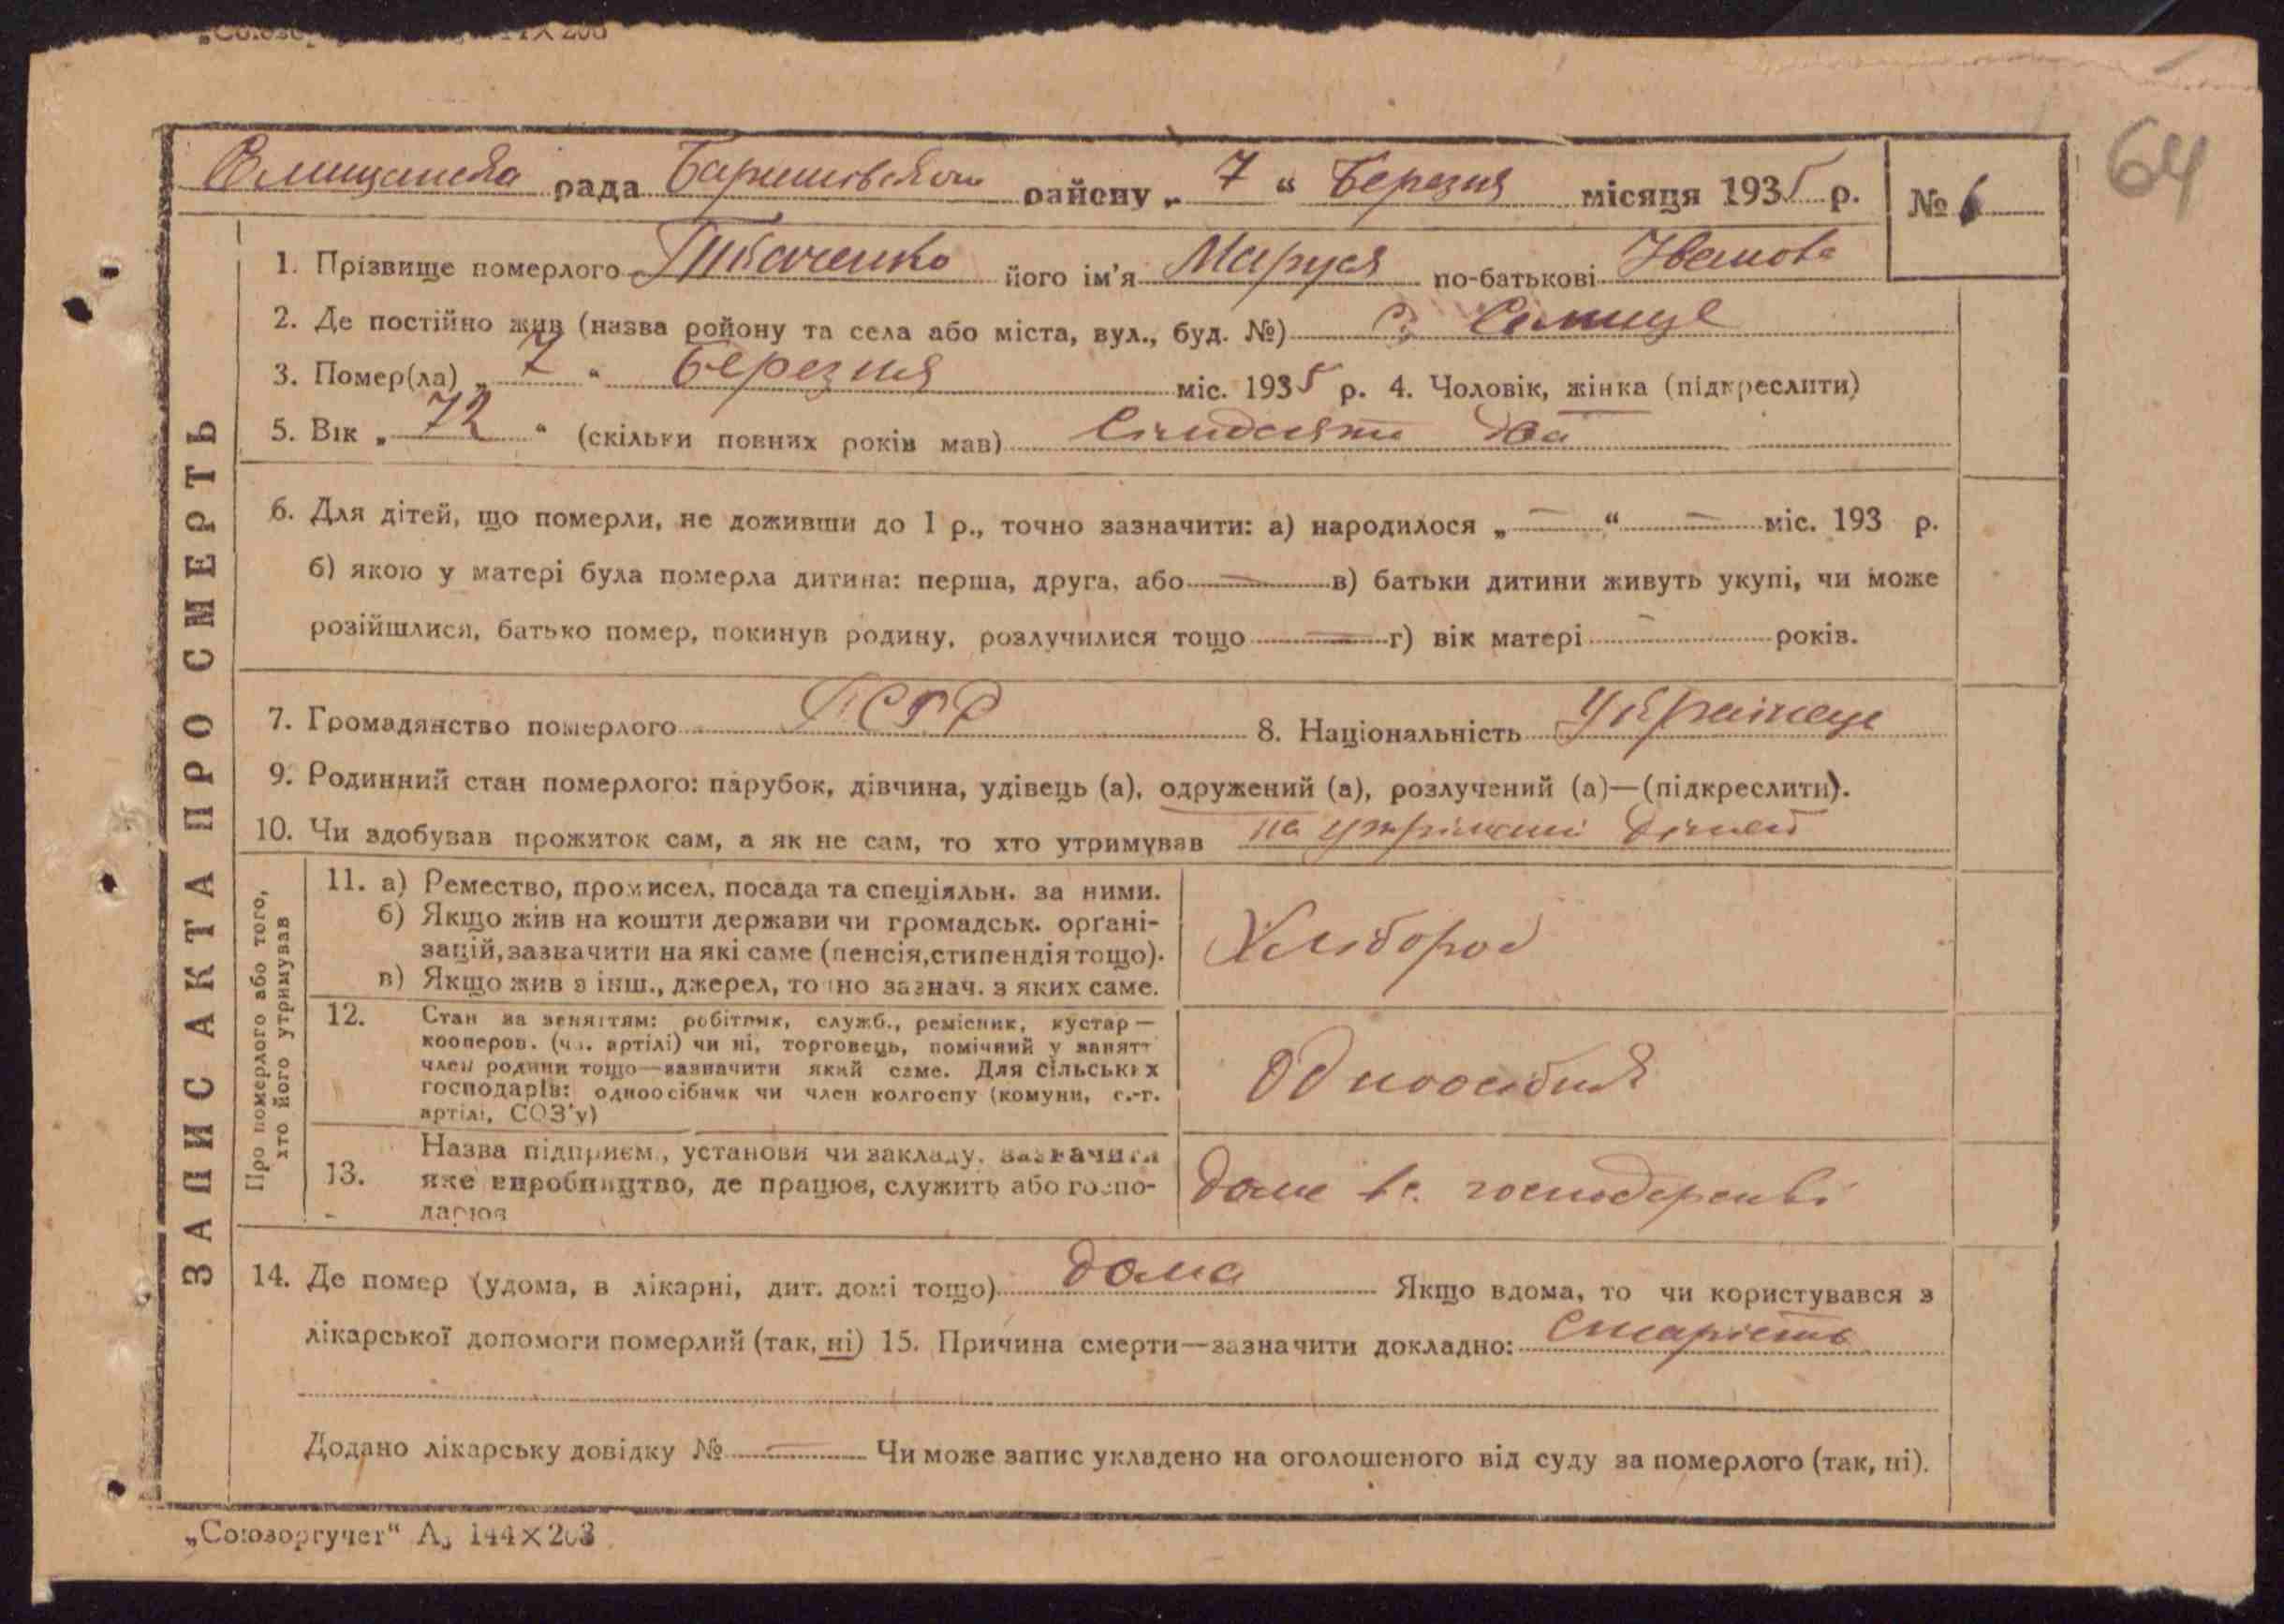 64
рада Баришовского району „ 7 “ Березня місяця 1935 р. № 6
ЗАПИС АКТА ПРО СМЕРТЬ
1. Прізвище померлого Ткаченко його ім'я Маруся по-батькові Иванова
2. Де постійно жив (назва ройону та села або міста, вул., буд. №) С. Селище
3. Помер(ла) „ 7 “ Березня міс. 1935 р. 4. Чоловік, жінка (підкреслити)
5. Вік „ 72 “ (скільки повних років мав) Сімдесять два
6. Для дітей, що померли, не доживши до 1 р., точно зазначити: а) народилося „ — “ — міс. 193 р.
б) якою у матері була померла дитина: перша, друга, або — в) батьки дитини живуть укупі, чи може
розійшлися, батько помер, покинув родину, розлучилися тощо — г) вік матері — років.
7. Громадянство померлого 8. Національність Українець
9. Родинний стан померлого: парубок, дівчина, удівець (а), одружений (а), розлучений (а)—(підкреслити).
10. Чи здобував прожиток сам, а як не сам, то хто утримував на утріманні дітей
Про померлого або того,
хто його утримував
11. а) Ремество, промисел, посада та спеціяльн. за ними.
б) Якщо жив на кошти держави чи громадськ. орґані-
зацій, зазначити на які саме (пенсія, стипендія тощо).
в) Якщо жив з інш., джерел, точно зазнач. з яких саме.
Хлібороб
12. Стан за заняттям: робітник, служб., ремісник, кустар—
кооперов. (чл. артілі) чи ні, торговець, помічний у занятт
член родини тощо—зазначити який саме. Для сільських
господарів: одноосібник чи член колгоспу (комуни, с.-г.
артілі, СОЗ'у)
Одноосібник
13. Назва підприєм., установи чи закладу, зазначити
яке виробництво, де працює, служить або госпо-
дарює
Дома в с. господарстві
14. Де помер (удома, в лікарні, дит. домі тощо) дома Якщо вдома, то чи користувався з
лікарської допомоги померлий (так, ні) 15. Причина смерти—зазначити докладно: старість
Додано лікарську довідку № — Чи може запис укладено на оголошеного від суду за померлого (так, ні).
„Союзоргучет“ А5 144×203